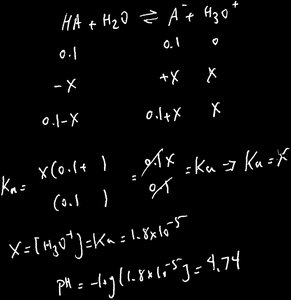 HA + H2O ⇌ A⁻ + H3O⁺
0.1 0.1 0
-X +X X
0.1-X 0.1+X X
Ka = X(0.1+ ) / (0.1 ) = 0.1X / 0.1 = Ka → Ka = X
X = [H3O⁺] = Ka = 1.8x10⁻⁵
PH = -log[1.8x10⁻⁵] = 4.74